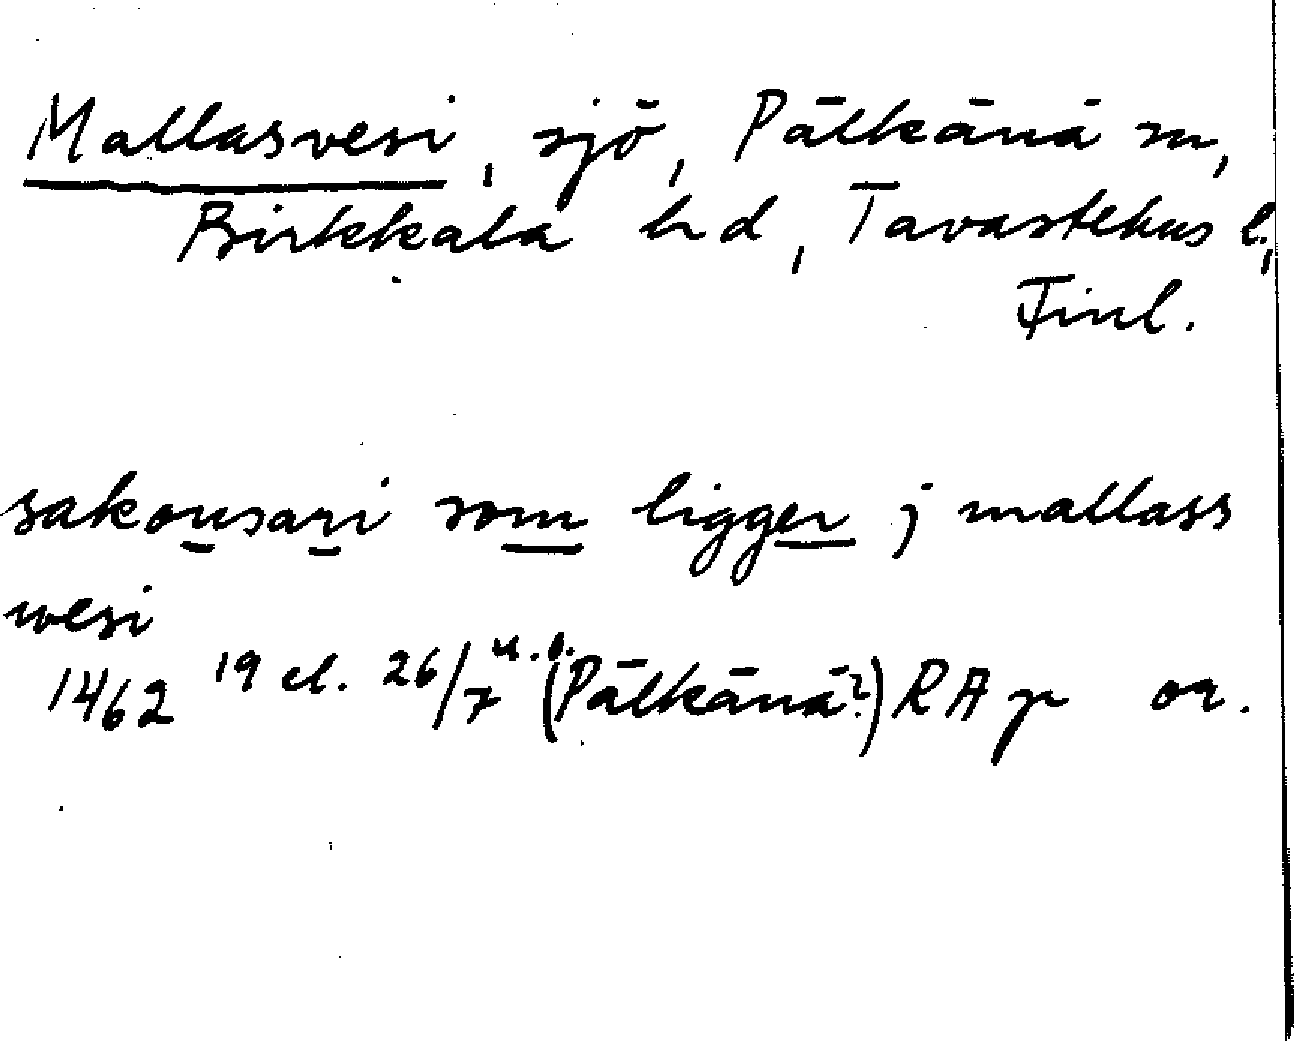 Mallasvesi, sjö, Pälkänä sn,
Birkkala hd, Tavastehus l.,
Finl.
sakonsari som ligger j mallass
wesi
1462 19 el. 26/7 u.o. (Pälkänä?) RAp or.